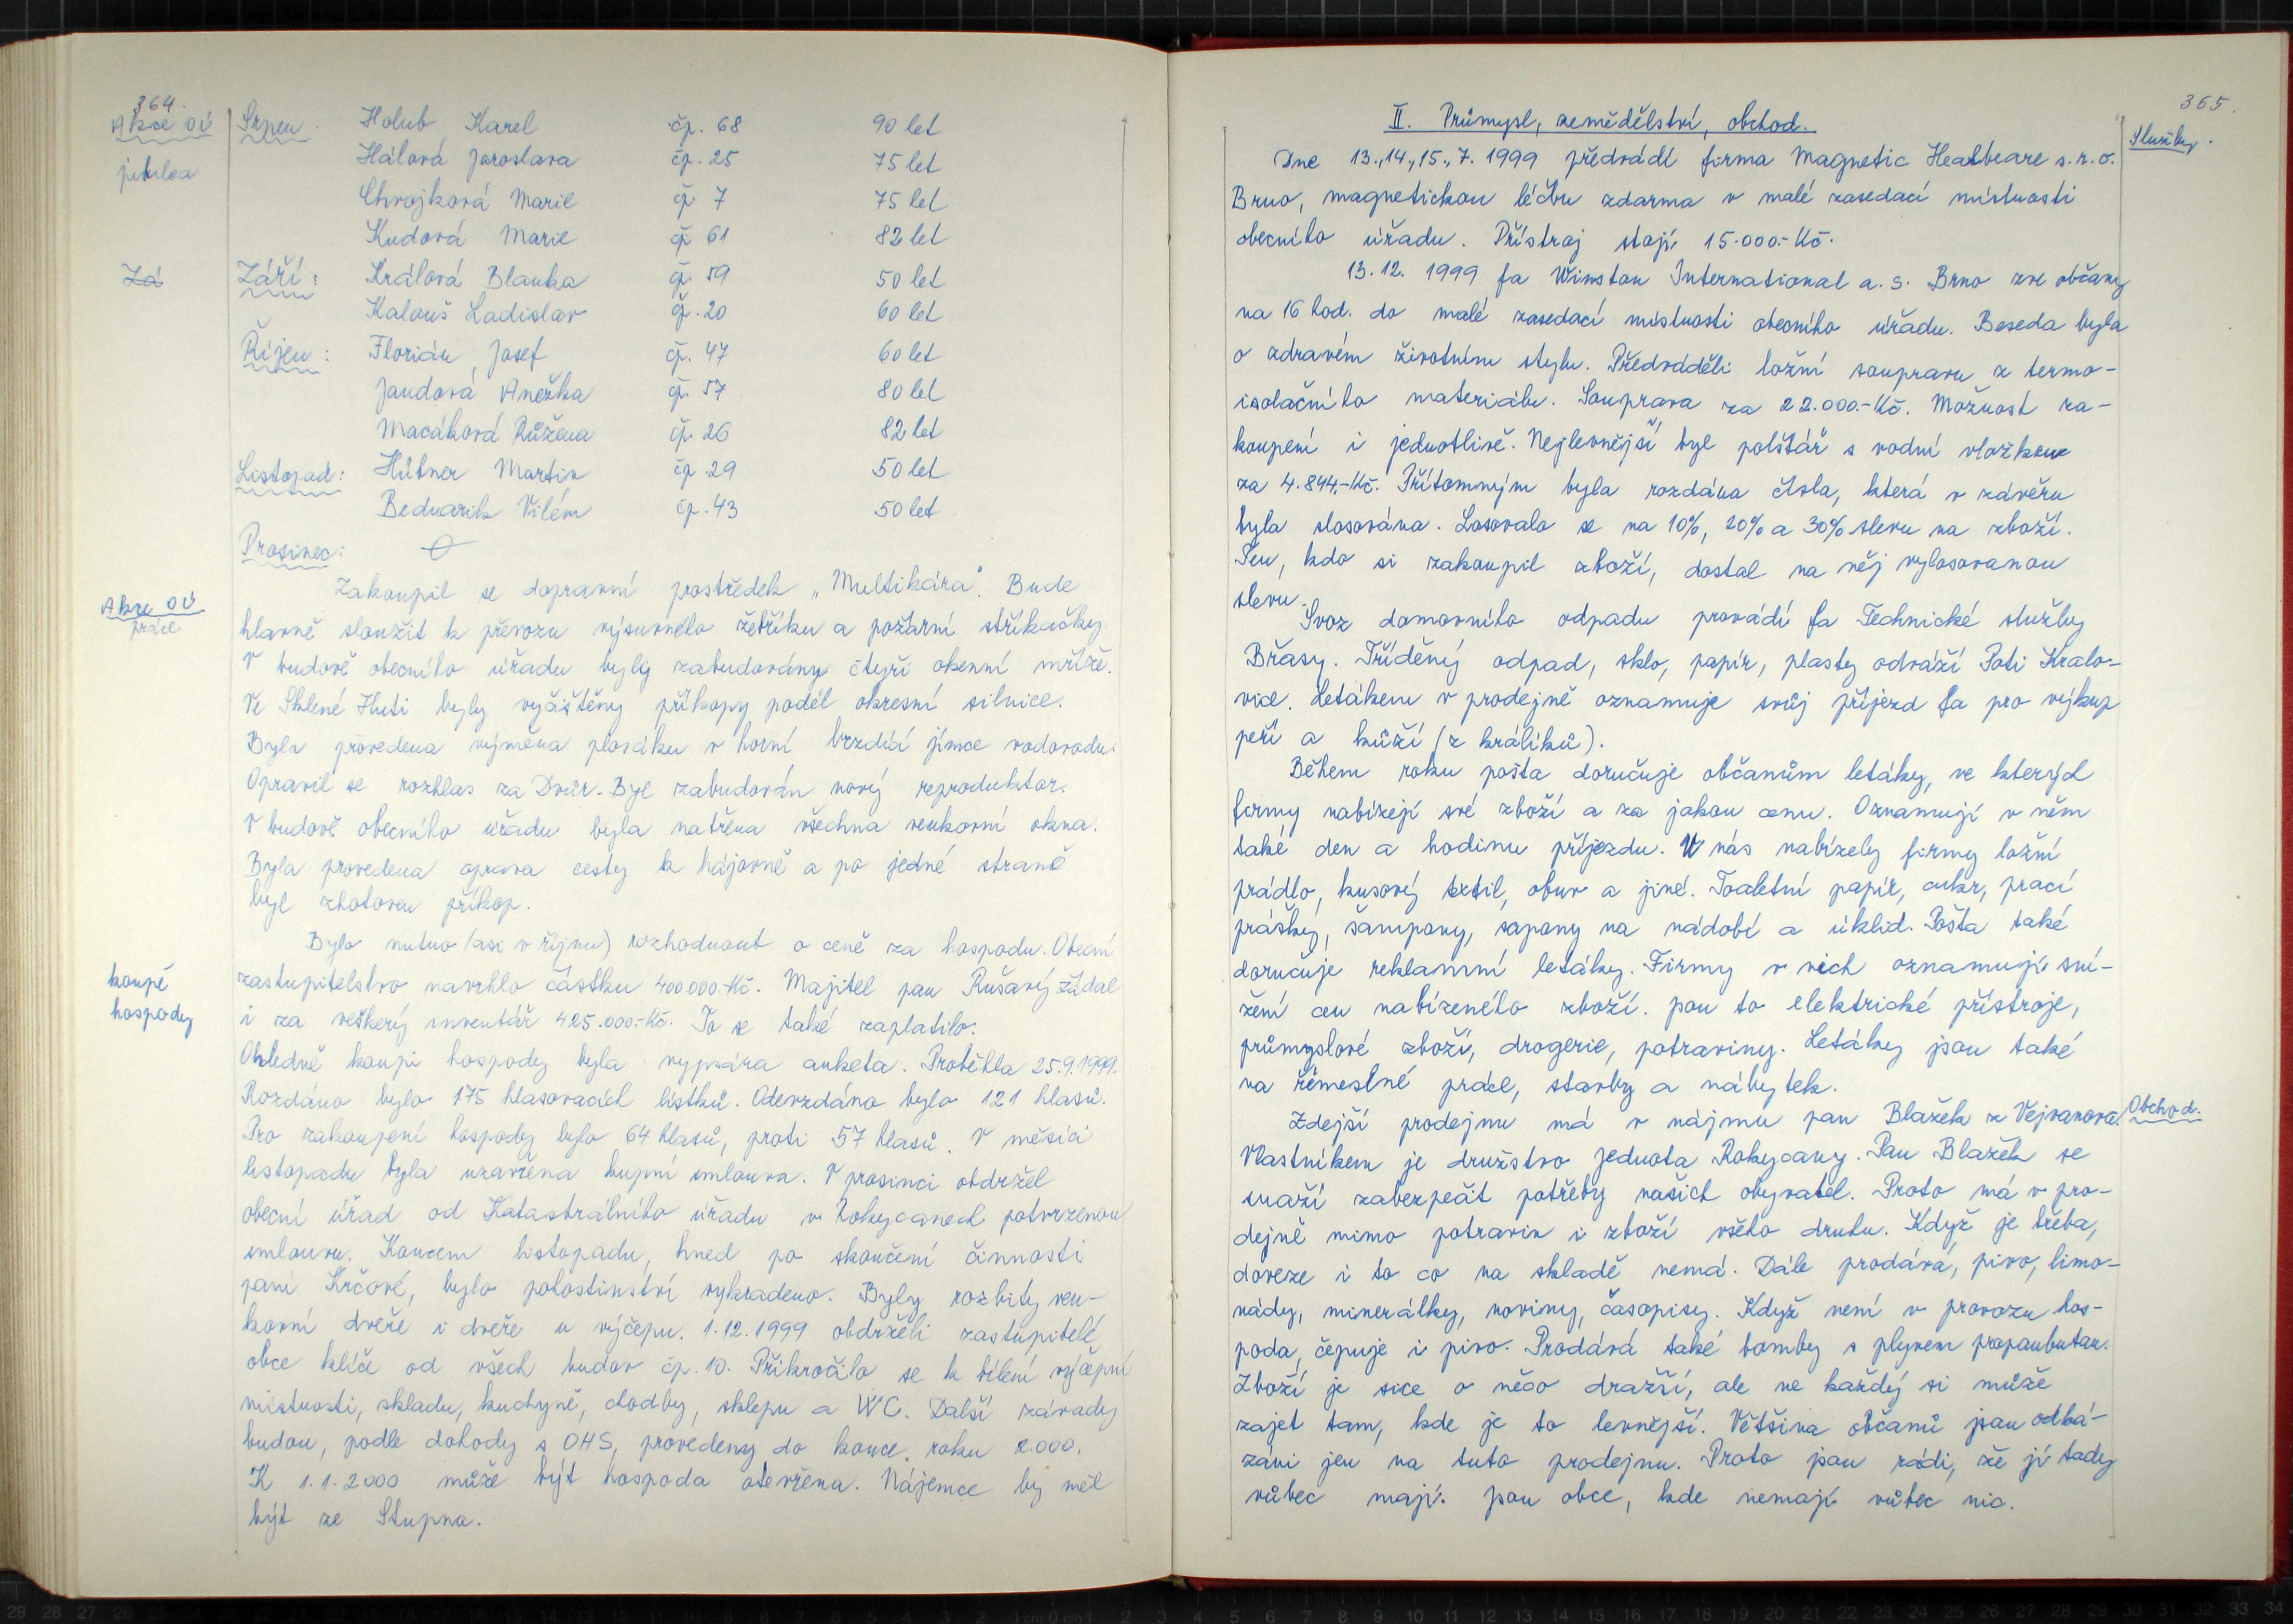 364.
Akce OÚ
jubilea
Srpen: Holub Karel čp. 68 90 let
Hálová Jaroslava čp. 25 75 let
Chvojková Marie čp. 7 75 let
Kudová Marie čp. 61 82 let
Zá
Září: Králová Blanka čp. 59 50 let
Kalouš Ladislav čp. 20 60 let
Říjen: Florián Josef čp. 47 60 let
Jandová Anežka čp. 57 80 let
Macáková Růžena čp. 26 82 let
Listopad: Hütner Martin čp. 29 50 let
Bednarik Vilém čp. 43 50 let
Prosinec:
Akce OÚ
práce
Zakoupil se dopravní prostředek „Multikára". Bude
hlavně sloužit k převozu výsuvného žebříku a požární stříkačky.
V budově obecního úřadu byly zabudovány čtyři okenní mříže.
Ve Sklené Huti byly vyčištěny příkopy podél okresní silnice.
Byla provedena výměna plováku v horní brzdící jímce vodovodu.
Opravil se rozhlas za Dvůr. Byl zabudován nový reproduktor.
V budově obecního úřadu byla natřena všechna venkovní okna.
Byla provedena oprava cesty k hájovně a po jedné straně
byl zhotoven příkop.
koupě
hospody
Bylo nutno (asi v říjnu) rozhodnout o ceně za hospodu. Obecní
zastupitelstvo navrhlo částku 400.000.-Kč. Majitel pan Rušavý žádal
i za veškerý inventář 425.000.-Kč. To se také zaplatilo.
Ohledně koupi hospody byla vypsána anketa. Proběhla 25.9.1999.
Rozdáno bylo 175 hlasovacích lístků. Odevzdáno bylo 121 hlasů.
Pro zakoupení hospody bylo 64 hlasů, proti 57 hlasů. V měsíci
listopadu byla uzavřena kupní smlouva. V prosinci obdržel
obecní úřad od Katastrálního úřadu v Rokycanech potvrzenou
smlouvu. Koncem listopadu, hned po skončení činnosti
paní Krčové, bylo pohostinství vykradeno. Byly rozbity ven-
kovní dveře i dveře u výčepu. 1.12.1999 obdrželi zastupitelé
obce klíče od všech budov čp. 10. Přikročilo se k bílení výčepní
místnosti, skladu, kuchyně, chodby, sklepu a WC. Další závady
budou, podle dohody s OHS, provedeny do konce roku 2.000.
K 1.1.2000 může být hospoda otevřena. Nájemce by měl
být ze Stupna.
365.
II. Průmysl, zemědělství, obchod.
Služby.
Dne 13.,14.,15.,7. 1999 předvádí firma Magnetic Healbeare s.r.o.
Brno, magnetickou léčbu zdarma v malé zasedací místnosti
obecního úřadu. Přístroj stojí 15.000.-Kč.
13.12. 1999 fa Winston International a.s. Brno zve občany
na 16 hod. do malé zasedací místnosti obecního úřadu. Beseda byla
o zdravém životním stylu. Předváděli ložní soupravu z termo-
isolačního materiálu. Souprava za 22.000.-Kč. Možnost za-
koupení i jednotlivě. Nejlevnější byl polštář s vodní vložkou
za 4.844.-Kč. Přítomným byla rozdána čísla, která v závěru
byla slosována. Losovalo se na 10%, 20% a 30% slevu na zboží.
Ten, kdo si zakoupil zboží, dostal na něj vylosovanou
slevu.
Svoz domovního odpadu provádí fa Technické služby
Břasy. Tříděný odpad, sklo, papír, plasty odváží Poti Kralo-
vice. Letákem v prodejně oznamuje svůj příjezd fa pro výkup
peří a kůží (z králíků).
Během roku pošta doručuje občanům letáky, ve kterých
firmy nabízejí své zboží a za jakou cenu. Oznamují v něm
také den a hodinu příjezdu. U nás nabízely firmy ložní
prádlo, kusový textil, obuv a jiné. Toaletní papír, cukr, prací
prášky, šampony, sapony na nádobí a úklid. Pošta také
doručuje reklamní letáky. Firmy v nich oznamují sní-
žení cen nabízeného zboží. Jsou to elektrické přístroje,
průmyslové zboží, drogerie, potraviny. Letáky jsou také
na řemeslné práce, stavby a nábytek.
Obchod.
Zdejší prodejnu má v nájmu pan Blažek z Vejvanova.
Vlastníkem je družstvo Jednota Rokycany. Pan Blažek se
snaží zabezpečit potřeby našich obyvatel. Proto má v pro-
dejně mimo potravin i zboží všeho druhu. Když je třeba,
doveze i to co na skladě nemá. Dále prodává, pivo, limo-
nády, minerálky, noviny, časopisy. Když není v provozu hos-
poda, čepuje i pivo. Prodává také bomby s plynem propanbutan.
Zboží je sice o něco dražší, ale ne každý si může
zajet tam, kde je to levnější. Většina občanů jsou odká-
záni jen na tuto prodejnu. Proto jsou rádi, že ji tady
vůbec mají. Jsou obce, kde nemají vůbec nic.